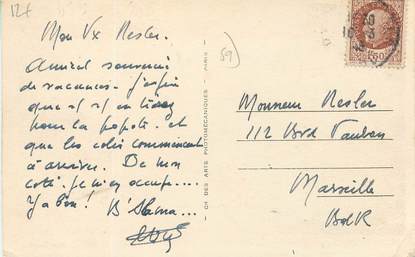 12f
Mon Vx Resler.
Amical souvenir
de vacances. J'espère
que
pour la popote. et
que les colis commencent
à arriver. De mon
coté. je m'en occupe....
Y a bon! B'Slama...
59
CH DES ARTS PHOTOMECANIQUES - PARIS
Monsieur Resler
112 Bvd Vauban
Marseille
BdR